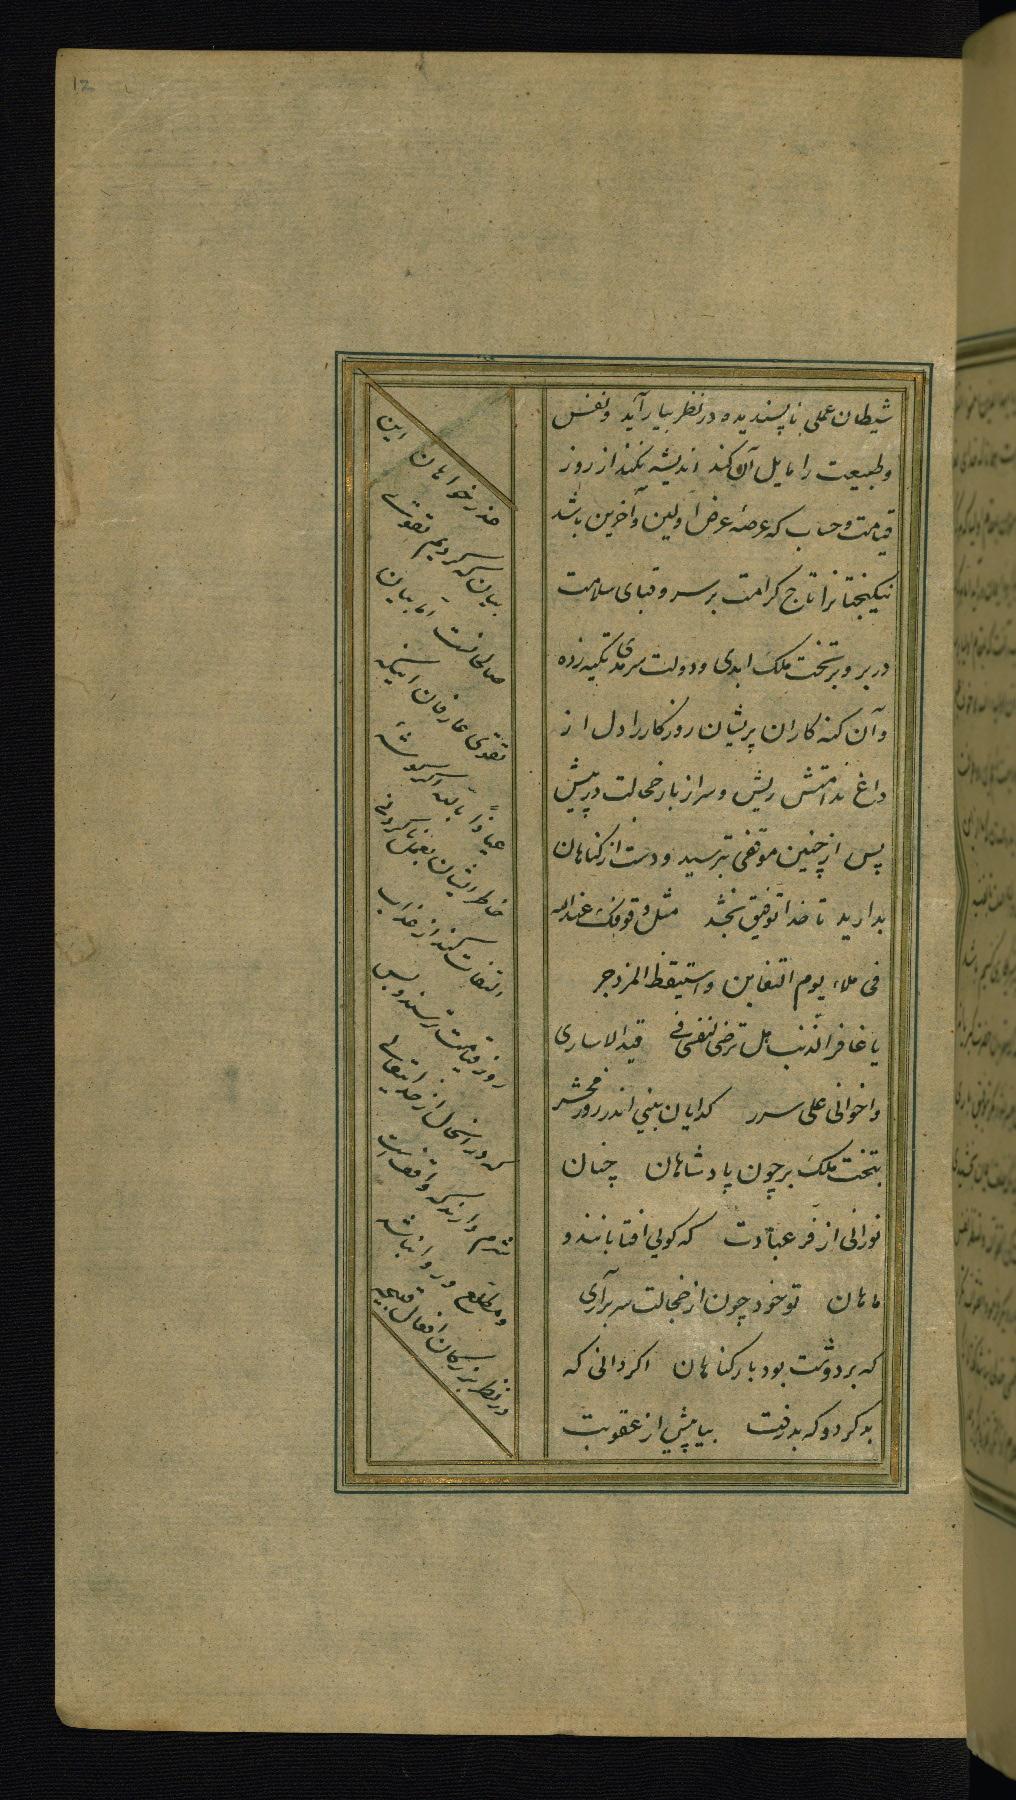 12
شیطان عملی ناپسندیده در نظر بیارآید و نفس
و طبیعت را مایل آن کند اندیشه بکنند از روز
قیامت و حساب که عرصهٔ عرض اولین و آخرین باشد
نیکبختانرا تاج کرامت بر سر و قبای سلامت
در بر و بر تخت ملک ابدی و دولت سرمدی تکیه زده
و آن کنه کاران پریشان روزکار را دل از
داغ ندامتش ریش و سر از بار خجالت در پیش
پس از چنین موقفی بترسید و دست از کناهان
بدارید تا خدا توفیق بخشد مثل وقوفک عند الله
فی ملاء یوم التغابن واستیقظ المزدجر
یا غافر الذنب هل ترضی لنفسی فی قید الاساری
و اخوانی علی سرر کدایان بینی اندر روز محشر
بتخت ملک بر چون پادشاهان چنان
نورانی از فر عبادت که کویی افتابانند و
ماهان تو خود چون از خجالت سر برآری
که بر دوشت بود بار کناهان اکر دانی که
بد کردو که بد رفت بیا پیش از عقوبت
عذر خواهان این
بیان که کردیم تقوی
صالحانست اما بیان
تقوی عارفان اینکه
عیاذا بالله اکر کوشهٔ
خاطر ایشان بفعل ناکردنی
التفات کند از عذاب
روز قیامت ترسند و بس
که در انحال از خدایتعالی
شرم دارند که واقفست
و مطلع و روا نباشد
در نظر بزرکان افعال قبیحه